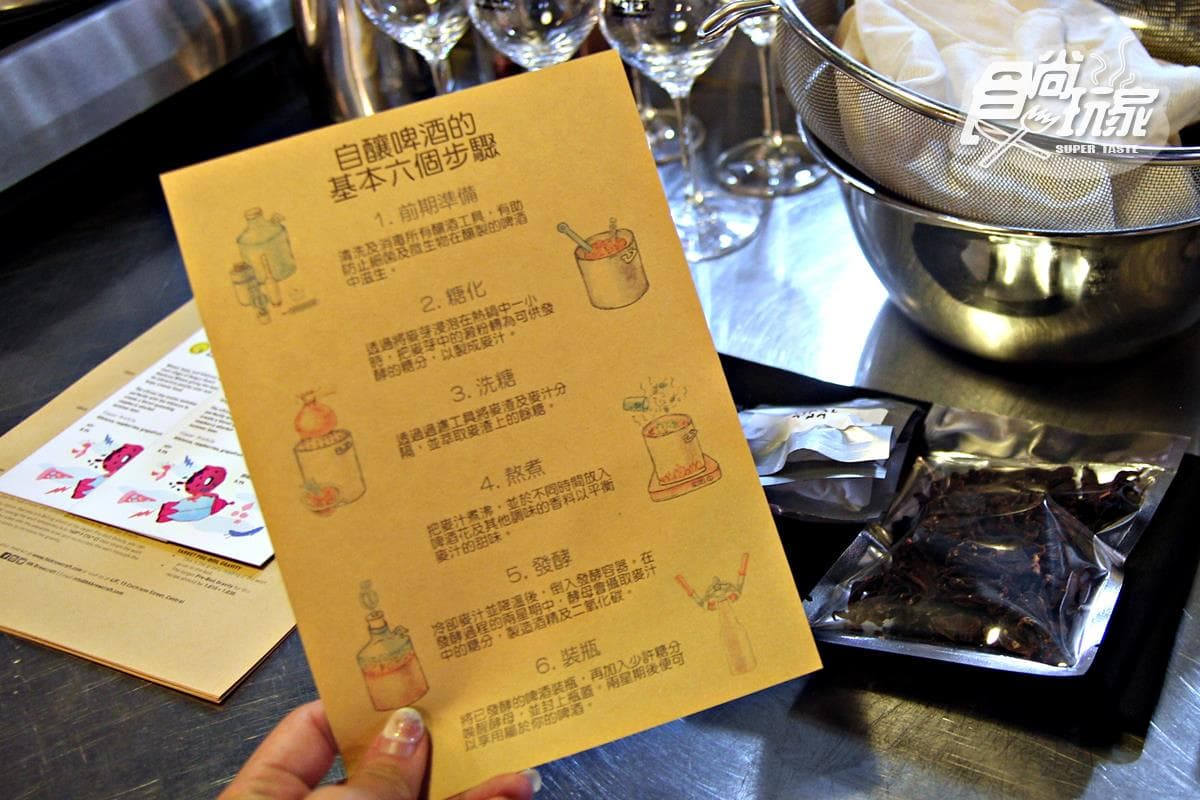 自釀啤酒的
基本六個步驟
1. 前期準備
清洗及消毒所有釀酒工具，有助
防止細菌及微生物在釀製的啤酒
中滋生。
2. 糖化
透過將麥芽浸泡在熱鍋中一小
時，把麥芽中的澱粉轉為可供發
酵的糖分，以製成麥汁。
3. 洗糖
透過過濾工具將麥渣及麥汁分
隔，並萃取麥渣上的餘糖。
4. 熬煮
把麥汁煮沸，並於不同時間放入
啤酒花及其他調味的香料以平衡
麥汁的甜味。
5. 發酵
冷卻麥汁並降溫後，倒入發酵容器，在
發酵過程的兩星期中，酵母會攝取麥汁
中的糖分，製造酒精及二氧化碳。
6. 裝瓶
將已發酵的啤酒裝瓶，再加入少許糖分
喚醒酵母，並封上瓶蓋。兩星期後便可
以享用屬於你的啤酒。
食尚玩家
SUPER TASTE
TARGET PRE-BOIL GRAVITY